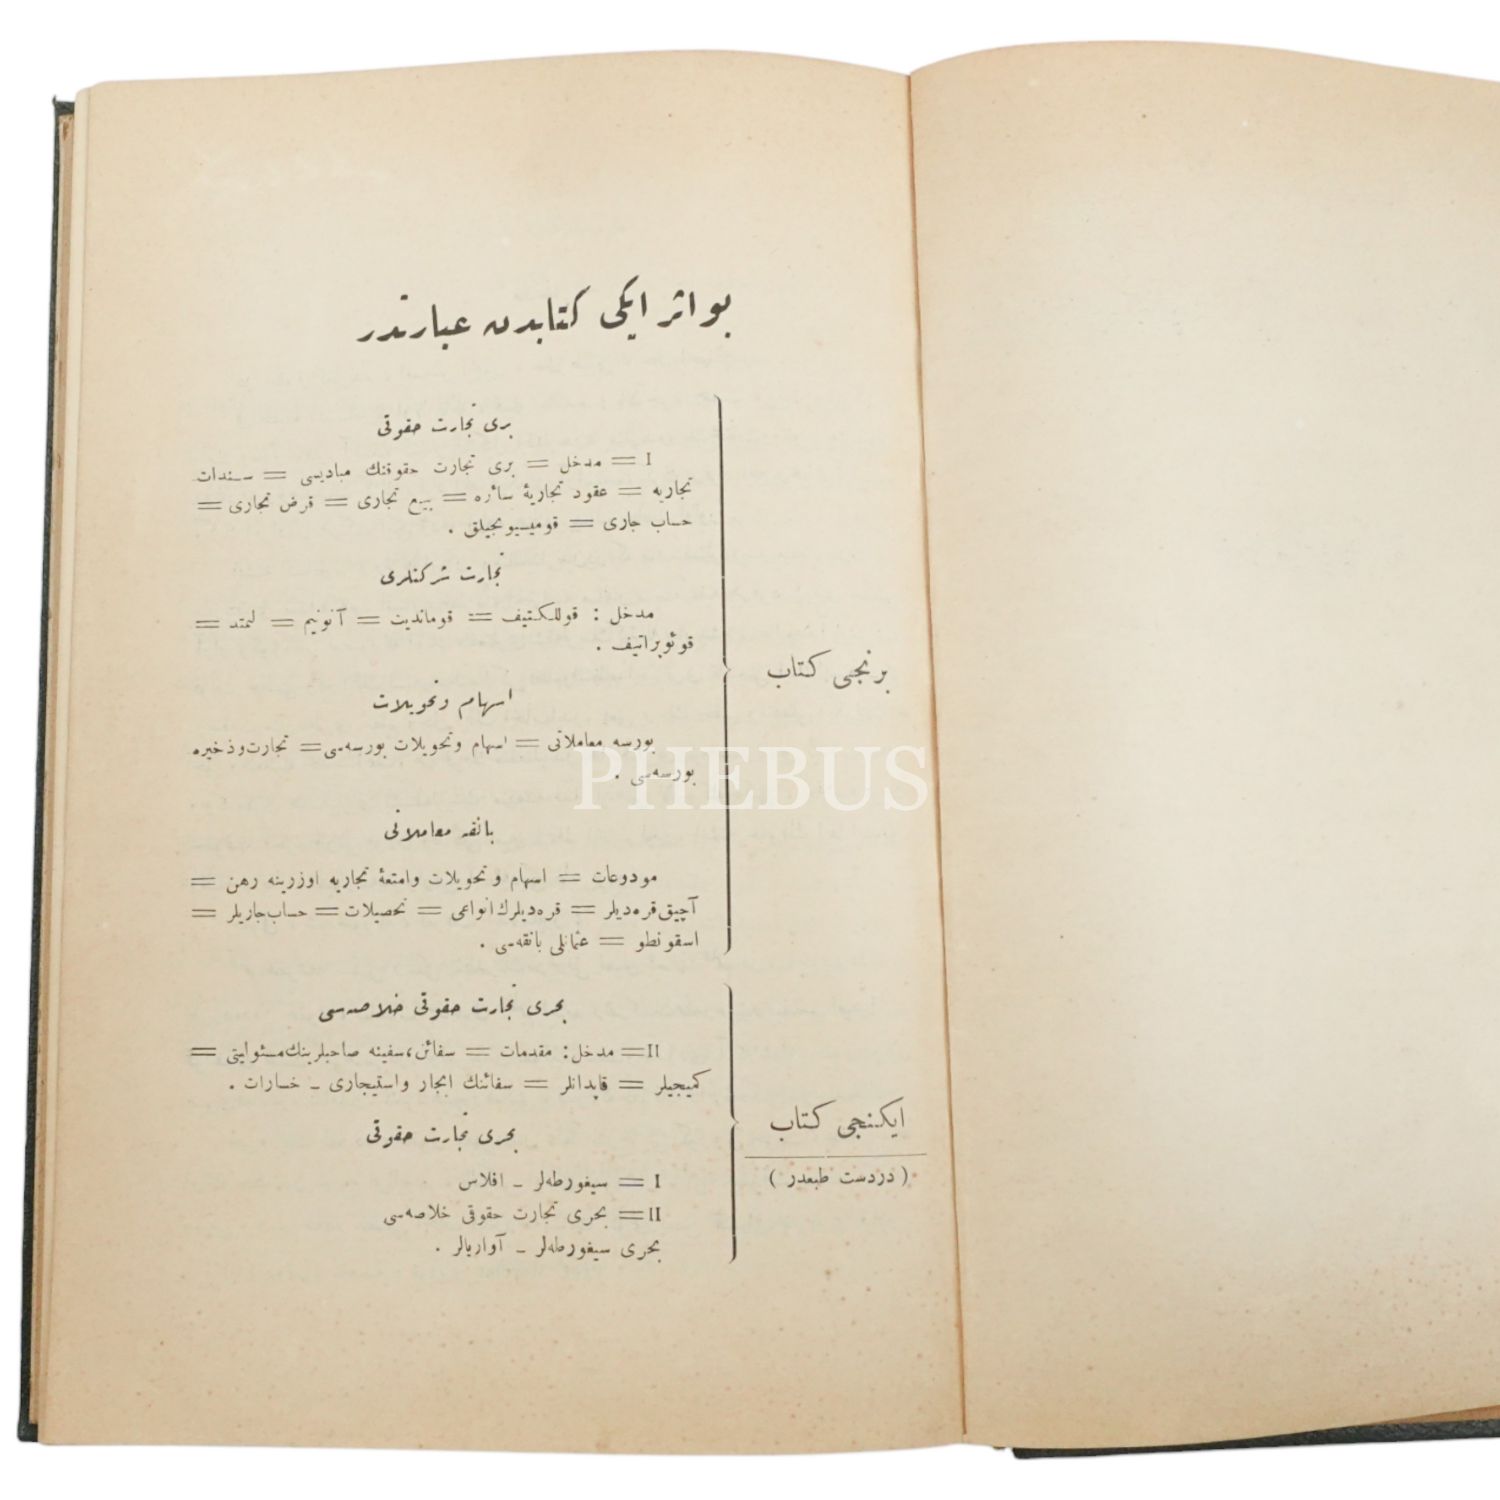 بو اثر ایکی کتابدن عبارتدر
بری تجارت حقوقی
I = مدخل = بری تجارت حقوقنك مبادیسی = سندات
تجاریه = عقود تجاریهٔ سائره = بیع تجاری = قرض تجاری =
حساب جاری = قومیسیونجیلق .
تجارت شرکتلری
مدخل : قوللکتیف = قوماندیت = آنونیم = لیمتد =
قوئوپراتیف .
برنجی کتاب
اسهام وتحویلات
بورسه معاملاتی = اسهام وتحویلات بورسه‌سی = تجارت وذخیره
بورسه‌سی .
PHEBUS
بانقه معاملاتی
مودوعات = اسهام وتحویلات وامتعهٔ تجاریه اوزرینه رهن =
آچیق قره‌دیلر = قره‌دیلرك انواعی = تحصیلات = حساب جاریلر =
اسقونطو = عثمانلی بانقه‌سی .
بحری تجارت حقوقی خلاصه‌سی
II = مدخل : مقدمات = سفائن، سفینه صاحبلرینك مسئولیتی =
کمیجیلر = قاپدانلر = سفائنك ایجار واستیجاری ـ خسارات .
ایکنجی کتاب
(دردست طبعدر)
بحری تجارت حقوقی
I = سیغورطه‌لر ـ افلاس
II = بحری تجارت حقوقی خلاصه‌سی
بحری سیغورطه‌لر ـ آواریالر .